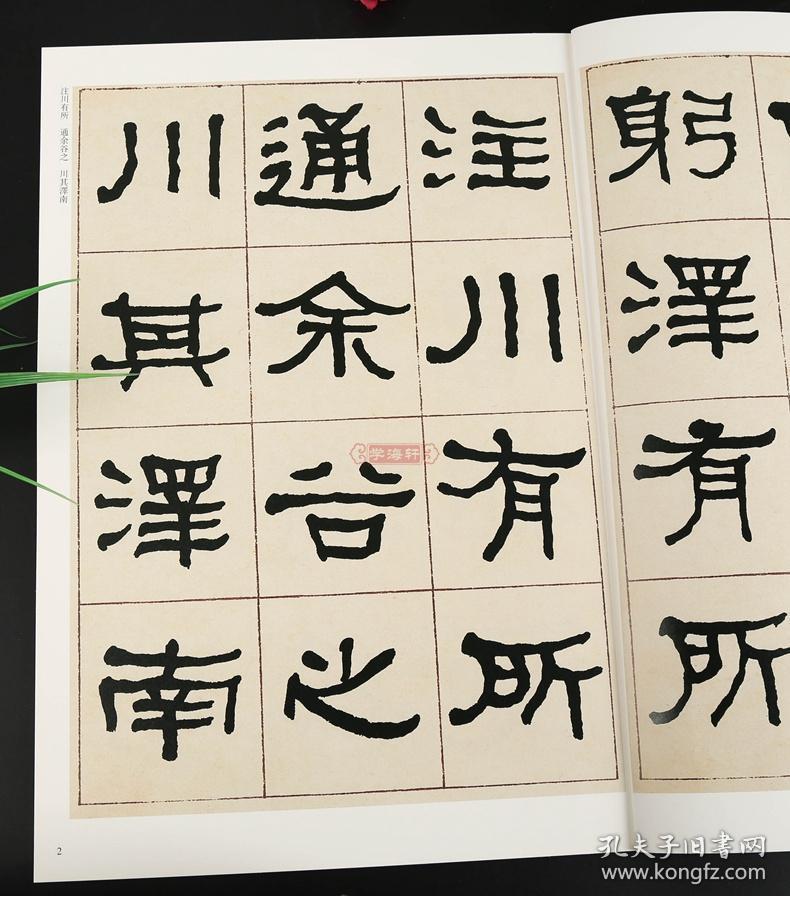 躬澤有所
注川有所
通余谷之
川其澤南
注川有所 通余谷之 川其澤南
学海轩
2
孔夫子旧书网
www.kongfz.com